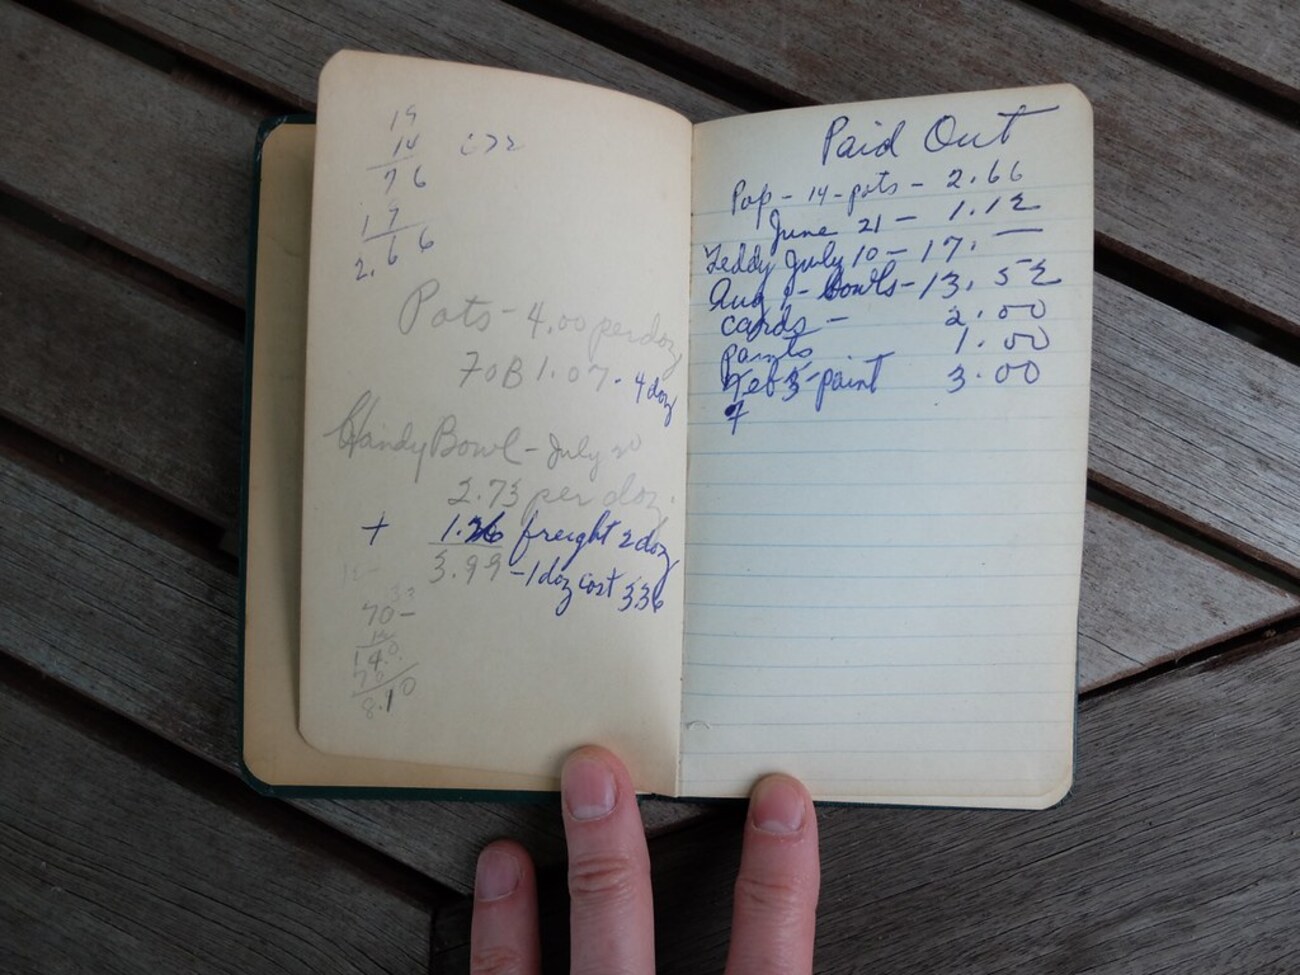 19
14
76
19
2.66
Pots - 4.00 per doz
FOB 1.07. 4 doz
Handy Bowl - July 20
2.73 per doz.
+ 1.26 freight 2 doz
3.99 - 1 doz cost 336
70 -
140
70
8.10
Paid Out
Pop - 14 - pots - 2.66
June 21 - 1.12
Teddy July 10 - 17. —
Aug 1 - Bowls - 13.52
cards - 2.00
paints 1.00
Feb 3 - paint 3.00
7